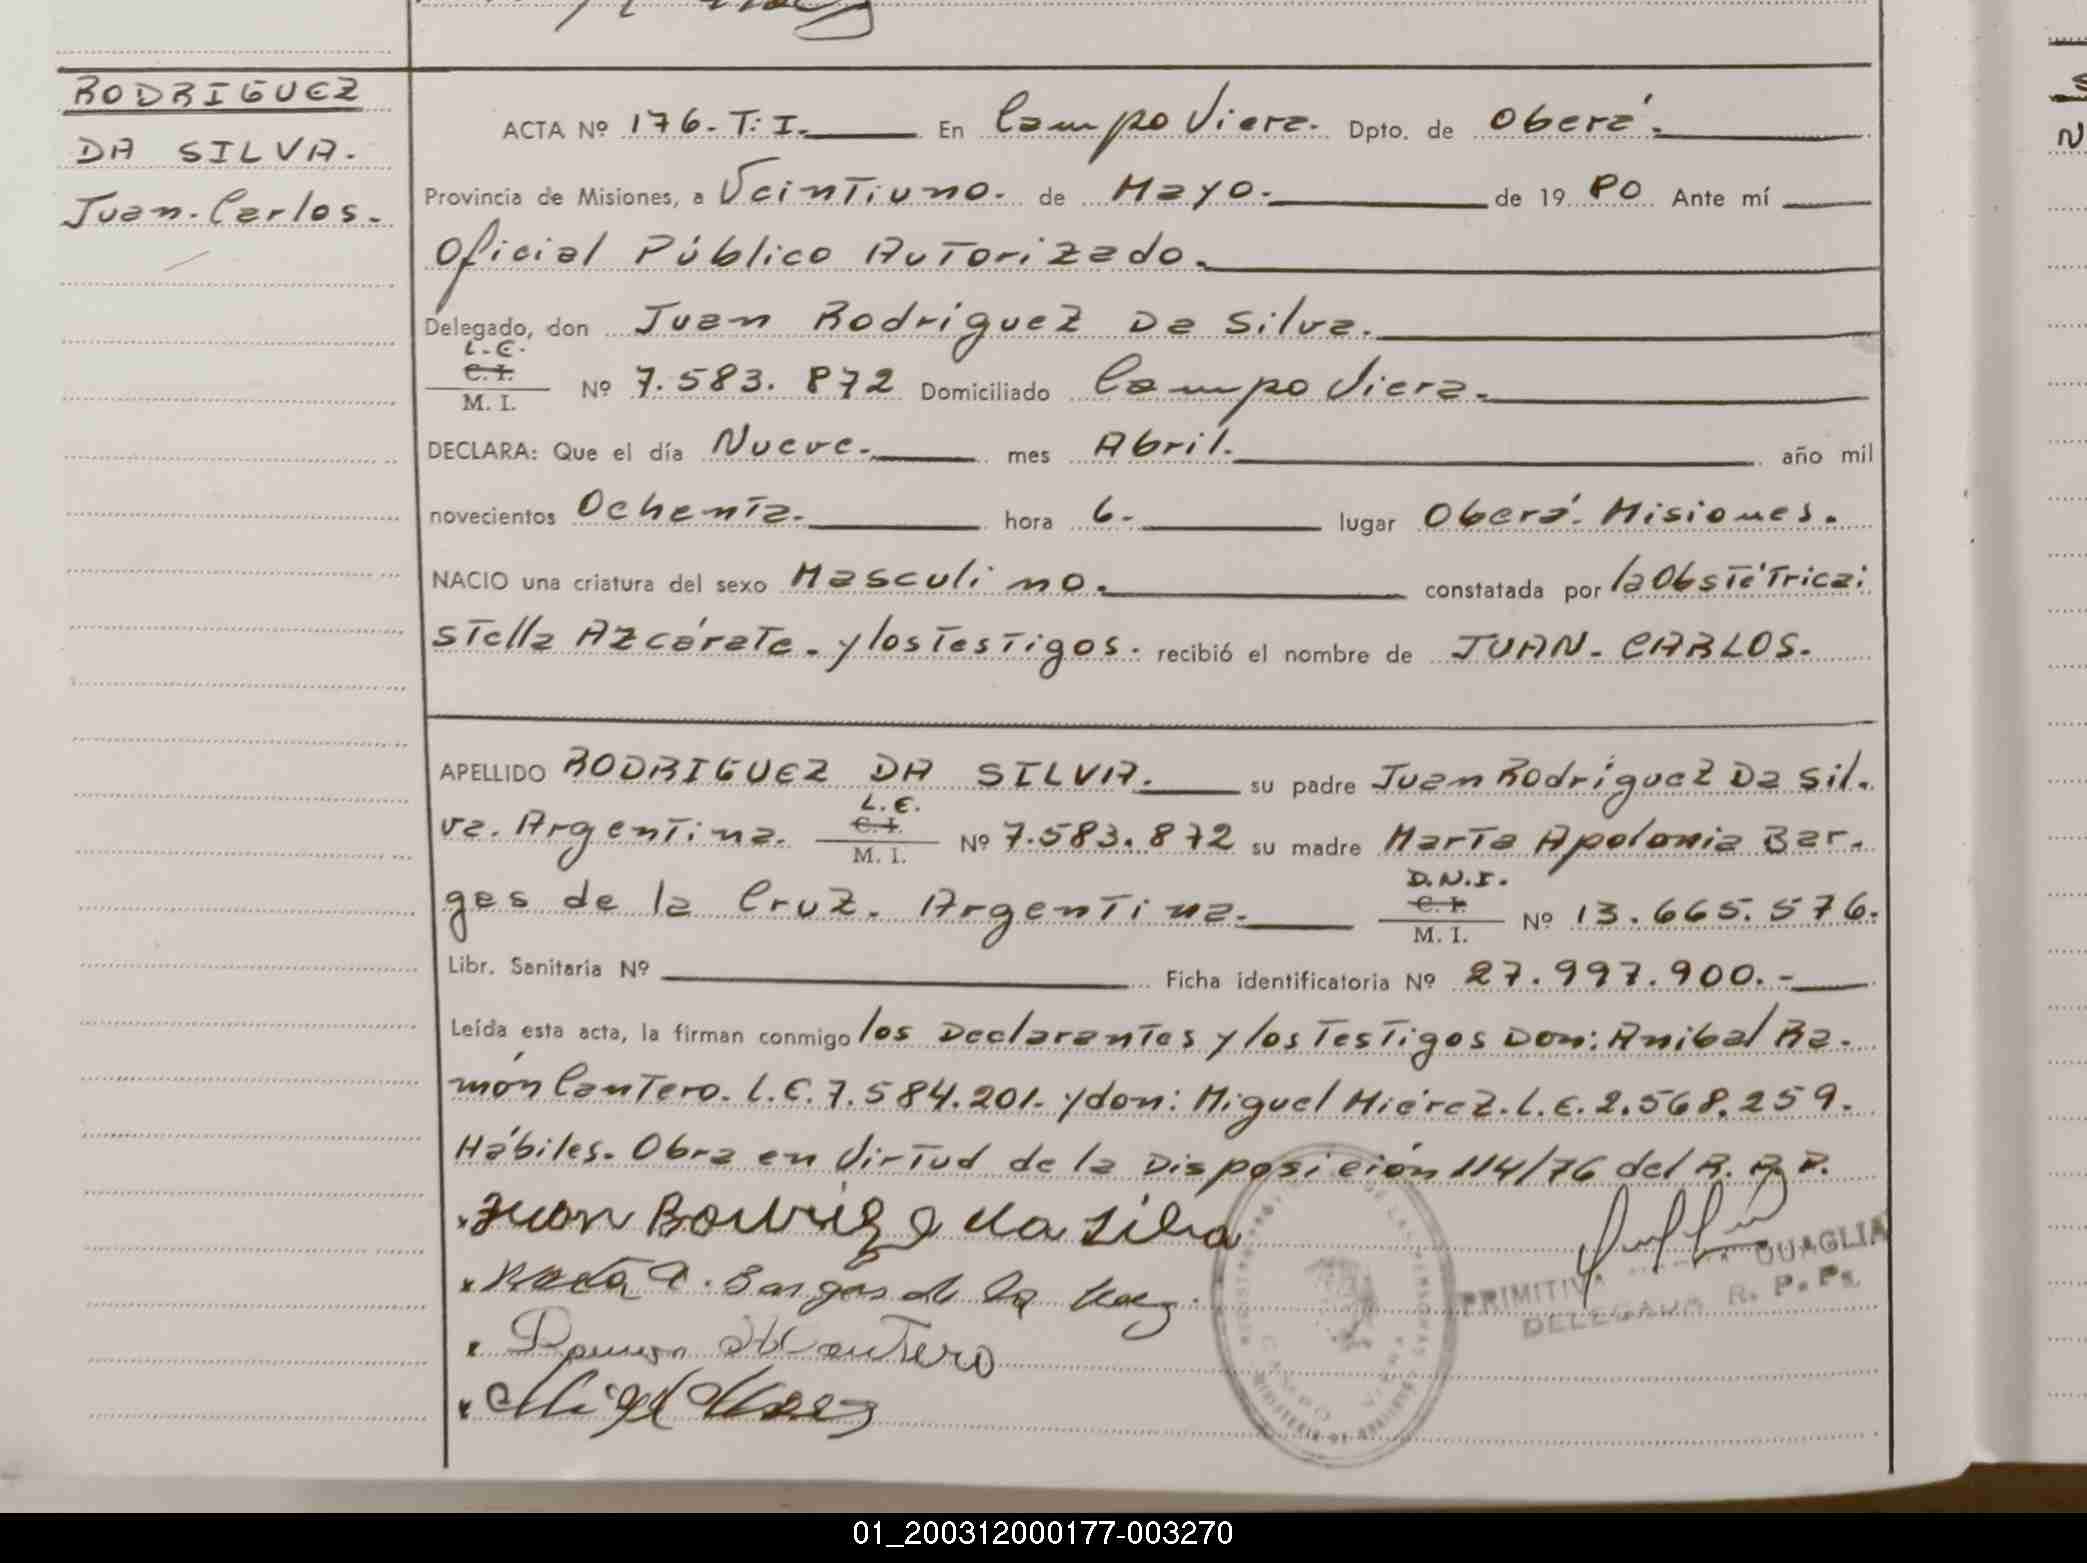 RODRIGUEZ
DA SILVA.
Juan-Carlos.
ACTA Nº 176. T. I. En Campo Viera. Dpto. de Oberá.
Provincia de Misiones, a Veintiuno. de Mayo. de 19 80 Ante mí
Oficial Público Autorizado.
Delegado, don Juan Rodríguez Da Silva.
L.E.
C. I.
M. I.
Nº 7.583.872 Domiciliado Campo Viera.
DECLARA: Que el día Nueve. mes Abril. año mil
novecientos Ochenta. hora 6. lugar Oberá. Misiones.
NACIO una criatura del sexo Masculino. constatada por la Obstétrica:
Stella Azcárate. y los Testigos. recibió el nombre de JUAN. CARLOS.
APELLIDO RODRIGUEZ DA SILVA. su padre Juan Rodríguez Da Sil.
L.E.
va. Argentina. C. I. Nº 7.583.872 su madre Marta Apolonia Bar.
M. I.
D.N.I.
ges de la Cruz. Argentina. C. I. Nº 13.665.576.
M. I.
Libr. Sanitaria Nº Ficha identificatoria Nº 27.997.900.-
Leída esta acta, la firman conmigo los Declarantes y los Testigos Don: Anibal Ra.
món Cantero. L.E. 7.584.201. y don: Miguel Miérez. L.E. 2.568.259.
Hábiles. Obra en Virtud de la Disposición 114/76 del R. P. P.
Juan Rodrigez da Silva
A. Barges de la
Ramon Cantero
PRIMITIVA QUAGLIA
DELEGADA R. P. Ps.
CAMPO VIERA
S
N
01_200312000177-003270